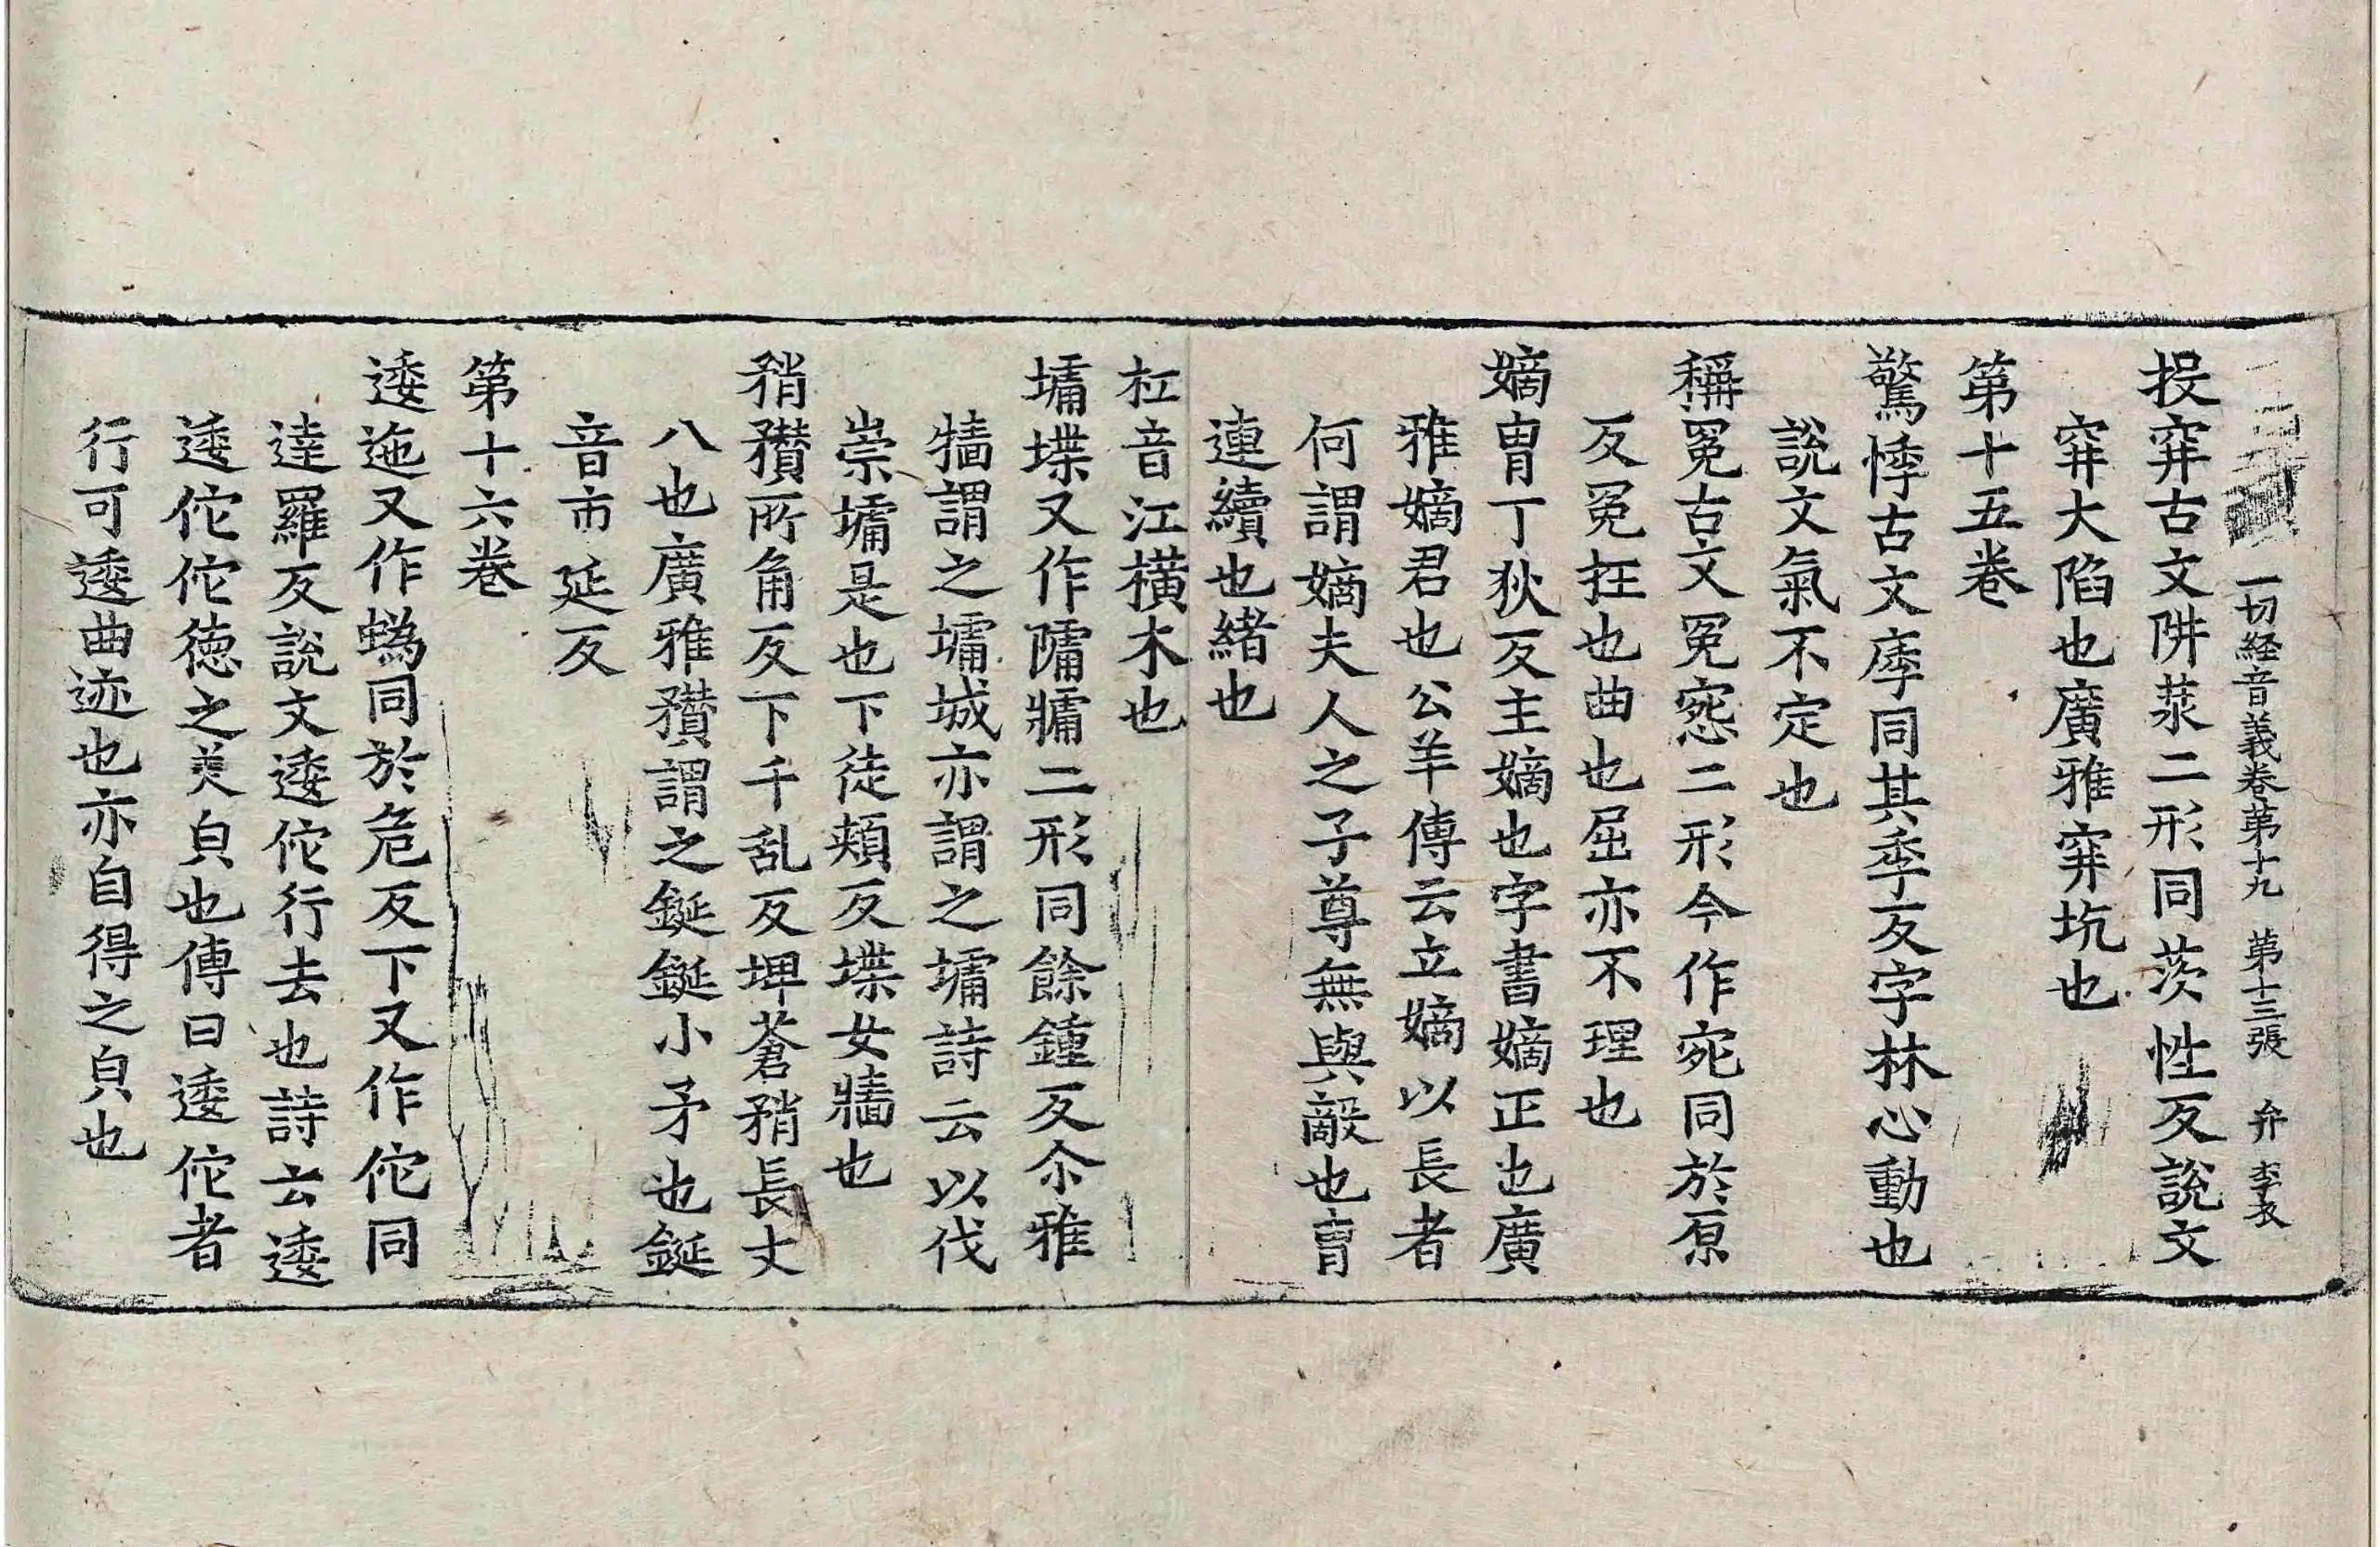 一切経音義卷第十九 第十三張 弁 李𠬧
投穽古文阱汬二形同茨性反説文
穽大陷也廣雅穽坑也
第十五卷
驚悸古文㾕同其季反字林心動也
説文氣不定也
稱冤古文冤窓二形今作宛同於原
反冤抂也曲也屈亦不理也
嫡胄丁狄反主嫡也字書嫡正也廣
雅嫡君也公羊傳云立嫡以長者
何謂嫡夫人之子尊無與敵也胄
連續也緒也
杠音江橫木也
墉堞又作𨻱牅二形同餘鍾反尒雅
牆謂之墉城亦謂之墉詩云以伐
崇墉是也下徒頰反堞女牆也
矟穳所角反下千乱反埤蒼矟長丈
八也廣雅穳謂之鋋鋋小矛也鋋
音市延反
第十六卷
逶迆又作蜲同於危反下又作佗同
達羅反説文逶佗行去也詩云逶
逶佗佗徳之美皃也傳曰逶佗者
行可逶曲迹也亦自得之皃也